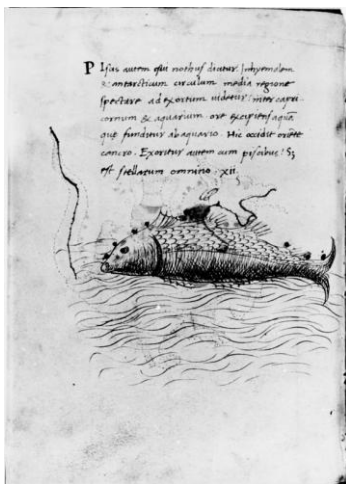 Piscis autem qui nothus dicitur. Inhyemalem
& antarcticum circulum media regione
spectare ad exortum uidetur: inter capri
cornum & aquarium ore excipiens aquā
que funditur ab aquario. Hic occidit oriēte
cancro. Exoritur autem cum piscibus: Sȝ
est stellarum omnino .xii.